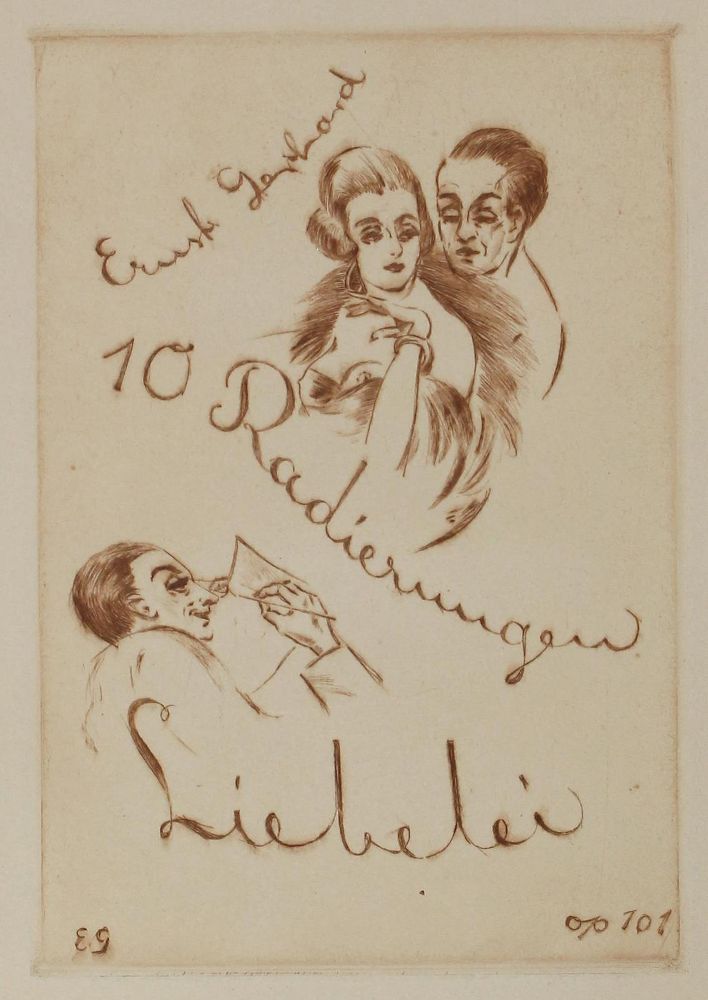 Ernst Gerhard
10 Radierungen
Liebelei
EG
op 101